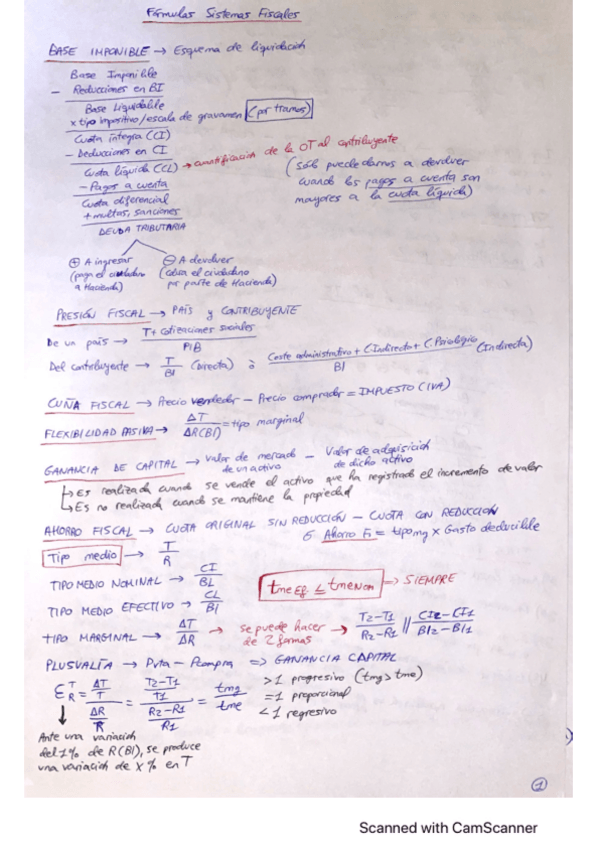 Fórmulas Sistemas Fiscales
BASE IMPONIBLE → Esquema de liquidación
Base Imponible
- Reducciones en BI
Base Liquidable
x tipo impositivo/escala de gravamen (por tramos)
Cuota íntegra (CI)
- Deducciones en CI
Cuota líquida (CL) → cuantificación de la OT al contribuyente
(Sólo puede darnos a devolver
cuando los pagos a cuenta son
mayores a la cuota líquida)
- Pagos a cuenta
Cuota diferencial
+ multas, sanciones
DEUDA TRIBUTARIA
⊕ A ingresar
(paga el ciudadano
a Hacienda)
⊖ A devolver
(cobra el ciudadano
por parte de Hacienda)
PRESIÓN FISCAL → PAÍS y CONTRIBUYENTE
De un país → T + Cotizaciones sociales / PIB
Del contribuyente → T / BI (Directa) ó Coste administrativo + C Indirecto + C Psicológico / BI (Indirecta)
CUÑA FISCAL → Precio vendedor - Precio comprador = IMPUESTO (IVA)
FLEXIBILIDAD PASIVA → ΔT / ΔR(BI) = tipo marginal
GANANCIA DE CAPITAL → Valor de mercado de un activo - Valor de adquisición de dicho activo
↳ Es realizada cuando se vende el activo que ha registrado el incremento de valor
↳ Es no realizada cuando se mantiene la propiedad
AHORRO FISCAL → CUOTA ORIGINAL SIN REDUCCIÓN - CUOTA CON REDUCCIÓN
Ahorro Fi = tipo mg x Gasto deducible
Tipo medio → T / R
TIPO MEDIO NOMINAL → CI / BL
tme Ef. ≤ tme Nom => SIEMPRE
TIPO MEDIO EFECTIVO → CL / BI
TIPO MARGINAL → ΔT / ΔR → se puede hacer de 2 formas → T2-T1 / R2-R1 // CI2-CI1 / BI2-BI1
PLUSVALÍA → Pvta - Pcompra => GANANCIA CAPITAL
E T R = ΔT / T / ΔR / R = T2-T1 / T1 / R2-R1 / R1 = tmg / tme
>1 progresivo (tmg > tme)
=1 proporcional
<1 regresivo
Ante una variación
del 1% de R(BI), se produce
una variación de x% en T
1
Scanned with CamScanner